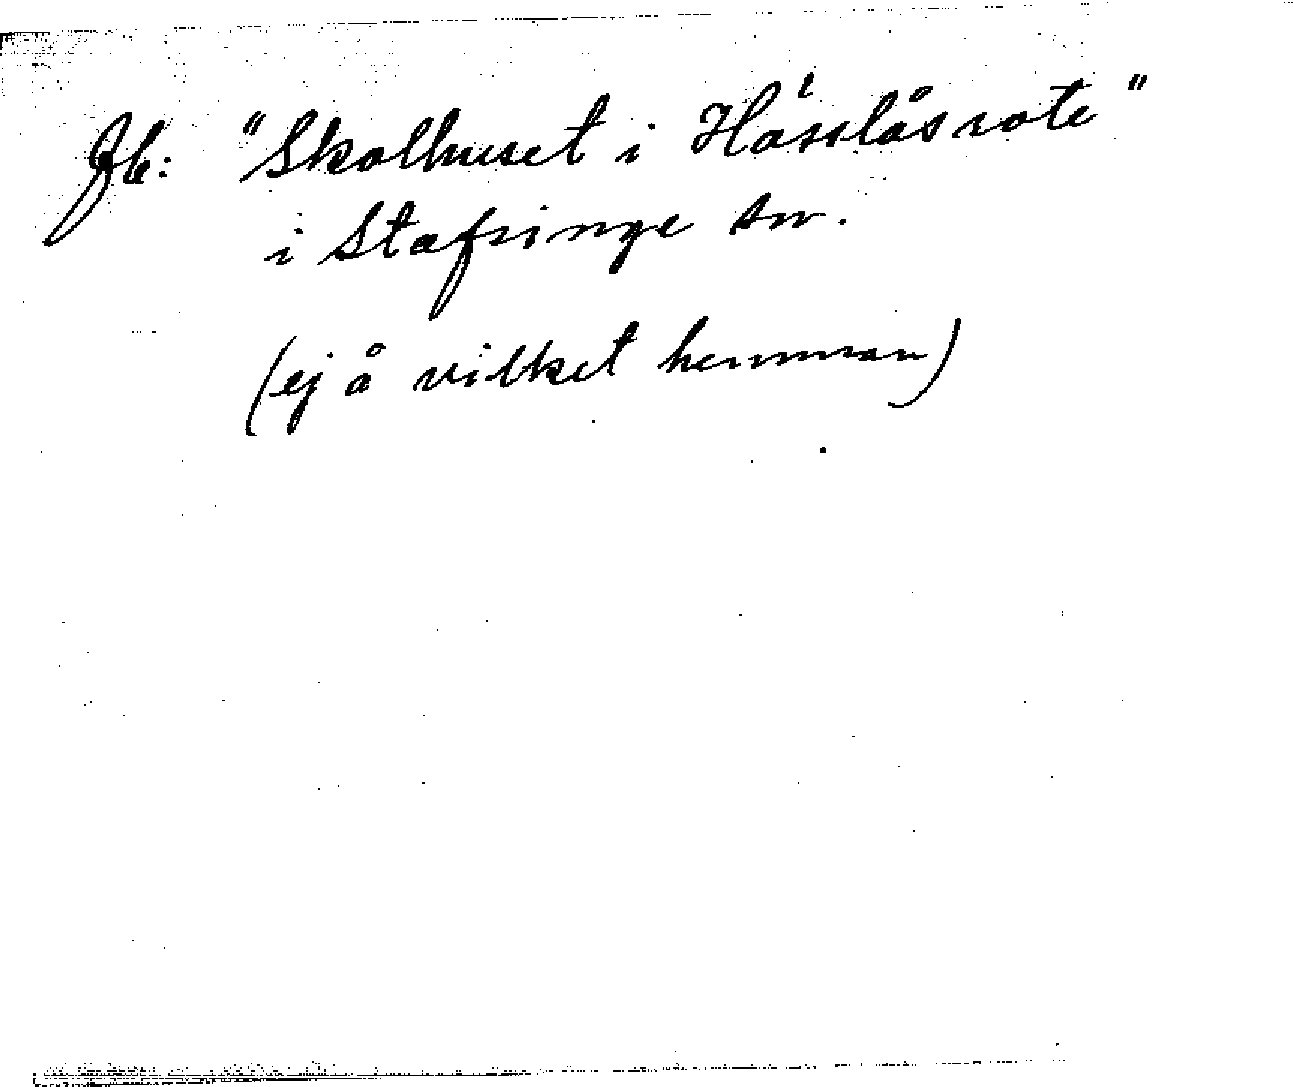 Jb: "Skolhuset i Hässlås rote"
i Stafsinge sn.
(ej å vilket hemman)